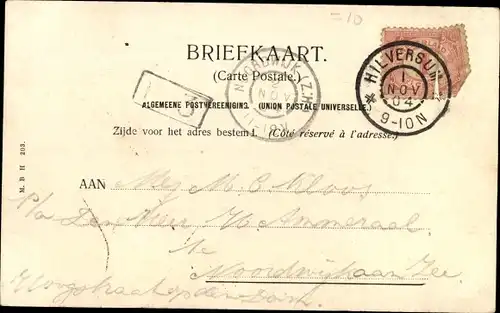 =10
BRIEFKAART.
(Carte Postale.)
HILVERSUM
1
NOV
04
9-10N
NOORDWIJK (Z:H)
NOV
1 3
ALGEMEENE POSTVEREENIGING. (UNION POSTALE UNIVERSELLE.)
Zijde voor het adres bestemd. (Côté réservé à l'adresse.)
M. B H 203.
AAN Mej M. C. Kloos
p/a Den Heer H Ammeraal
te
Noordwijk aan Zee